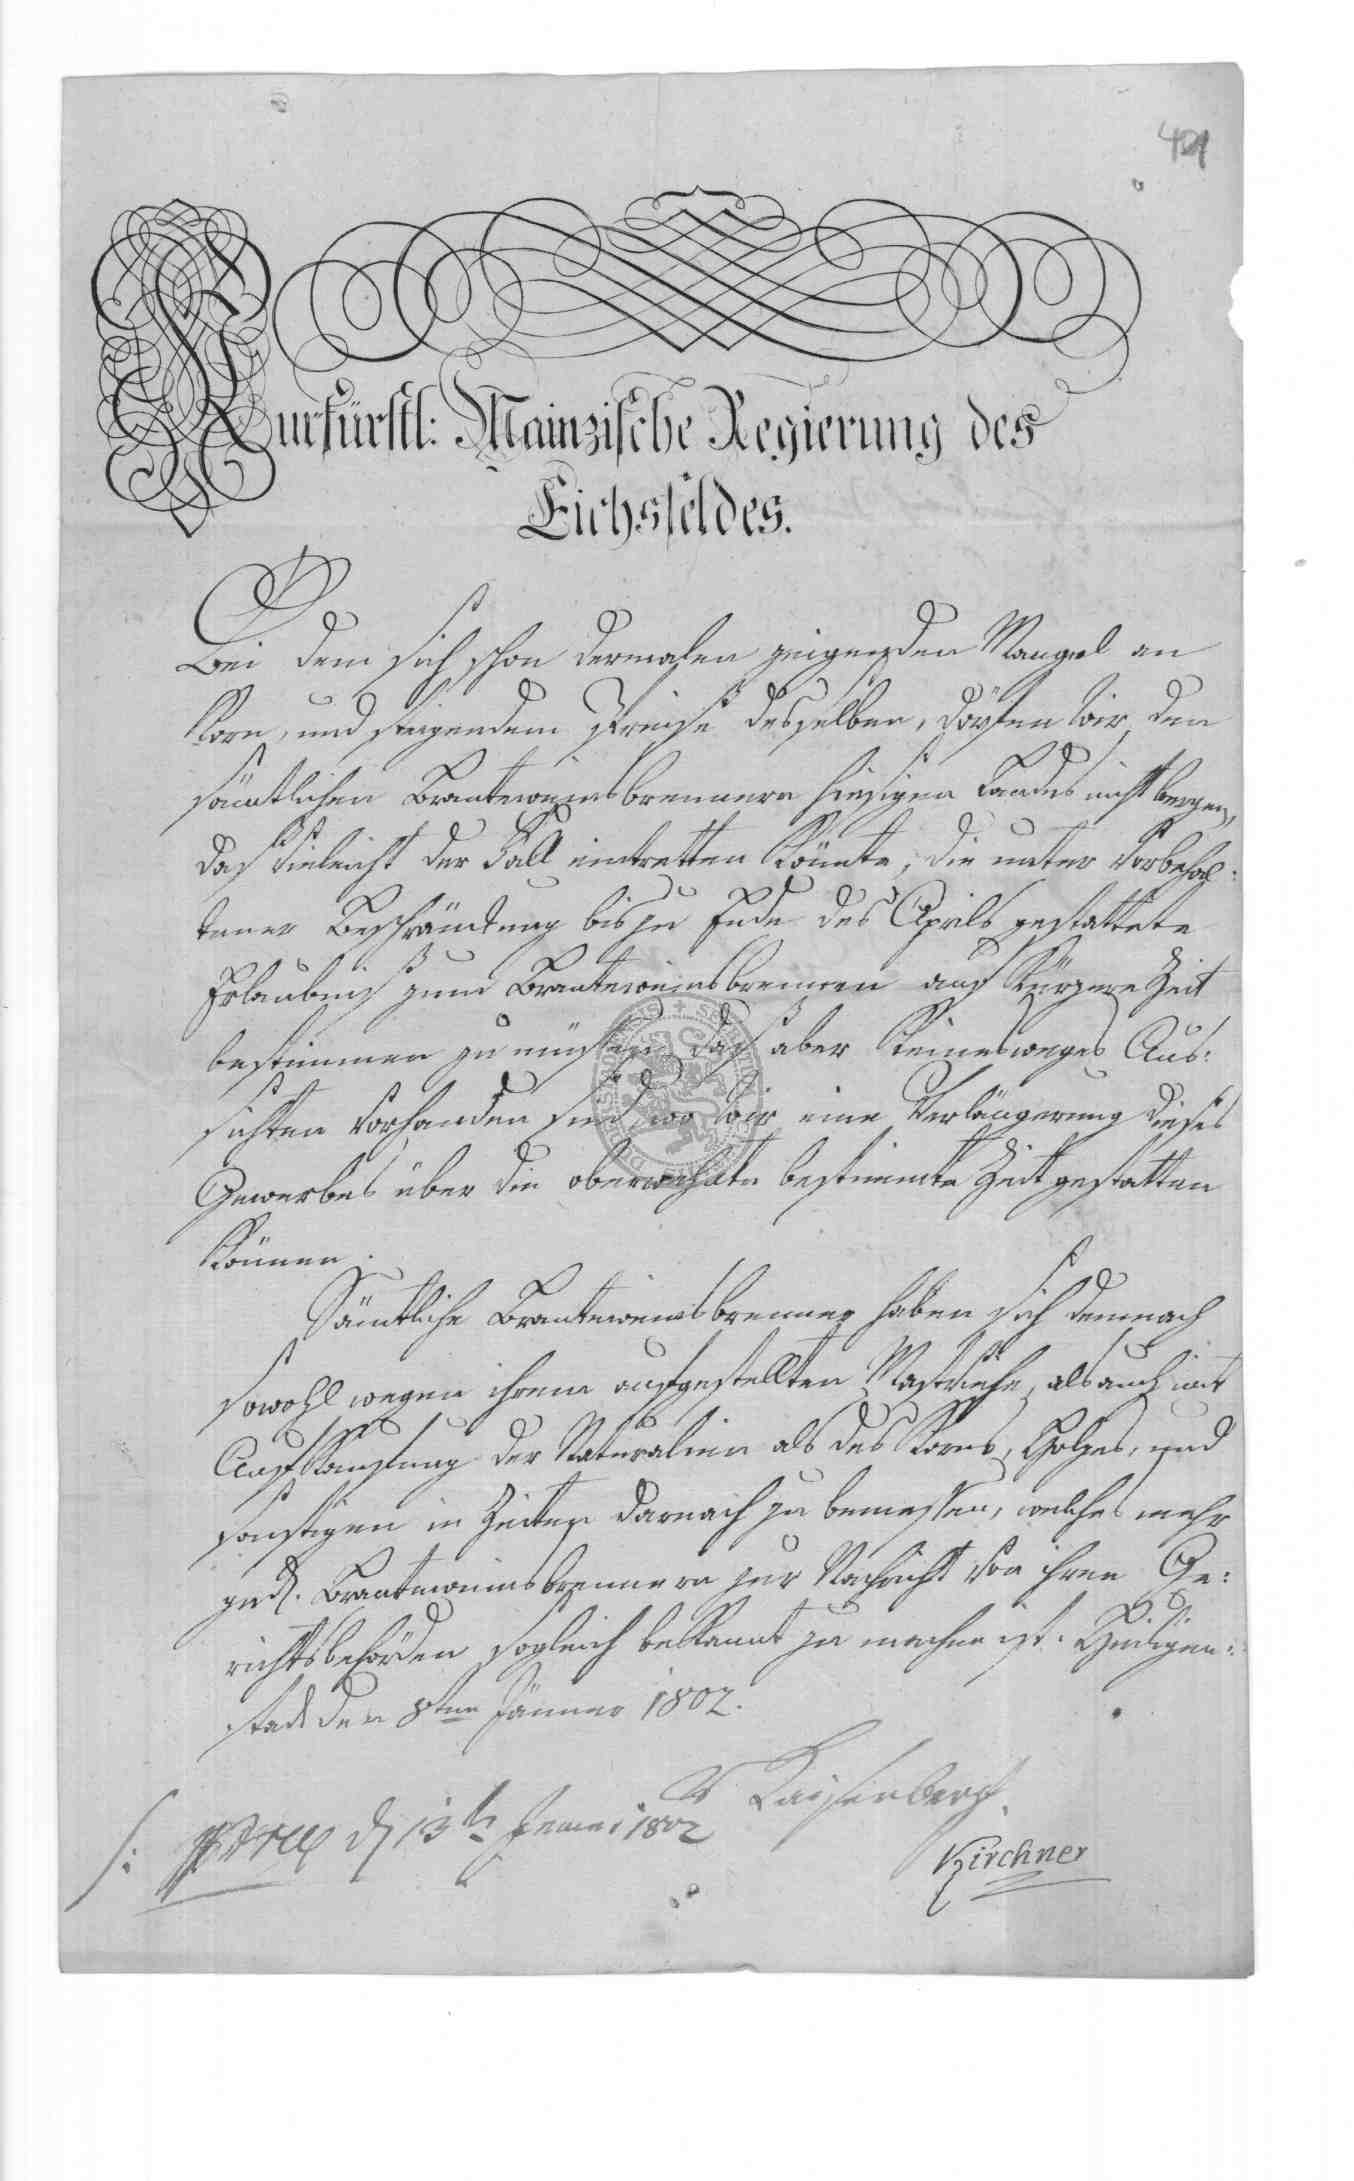 401
Kurfürstl: Mainzische Regierung des
Eichsfeldes.
Bei dem sich schon dermalen zeigenden Mangel an
Korn, und steigendem Preise desselben, dörfen wir den
sämtlichen Brantweinsbrennern hiesigen Landes nicht bergen,
daß vieleicht der Fall eintretten könnte, die unter vorbehal:
tener Beschränkung bis zu Ende des Aprils gestattete
Erlaubniß zum Brantweinsbrennen auf kürzere Zeit
bestimmen zu müssen, daß aber keinesweges Aus:
sichten vorhanden sind, wo wir eine Verlängerung dieses
Gewerbes über die oberwehnte bestimmte Zeit gestatten
können.
Sämtliche Brantweinsbrenner haben sich demnach
sowohl wegen ihrem aufgestellten Mastviehe, als auch mit
Aufkaufung der Naturalien als des Korns, Holzes, und
sonstigen in Zeiten darnach zu bemessen, welches mehr
ged. Brantweinsbrennern zur Nachricht von ihren Ge:
richtsbehörden sogleich bekannt zu machen ist. Heiligen:
stadt den 8ten Jänner 1802.
v Kaisenberg
Kirchner
d 13t Jenner 1802